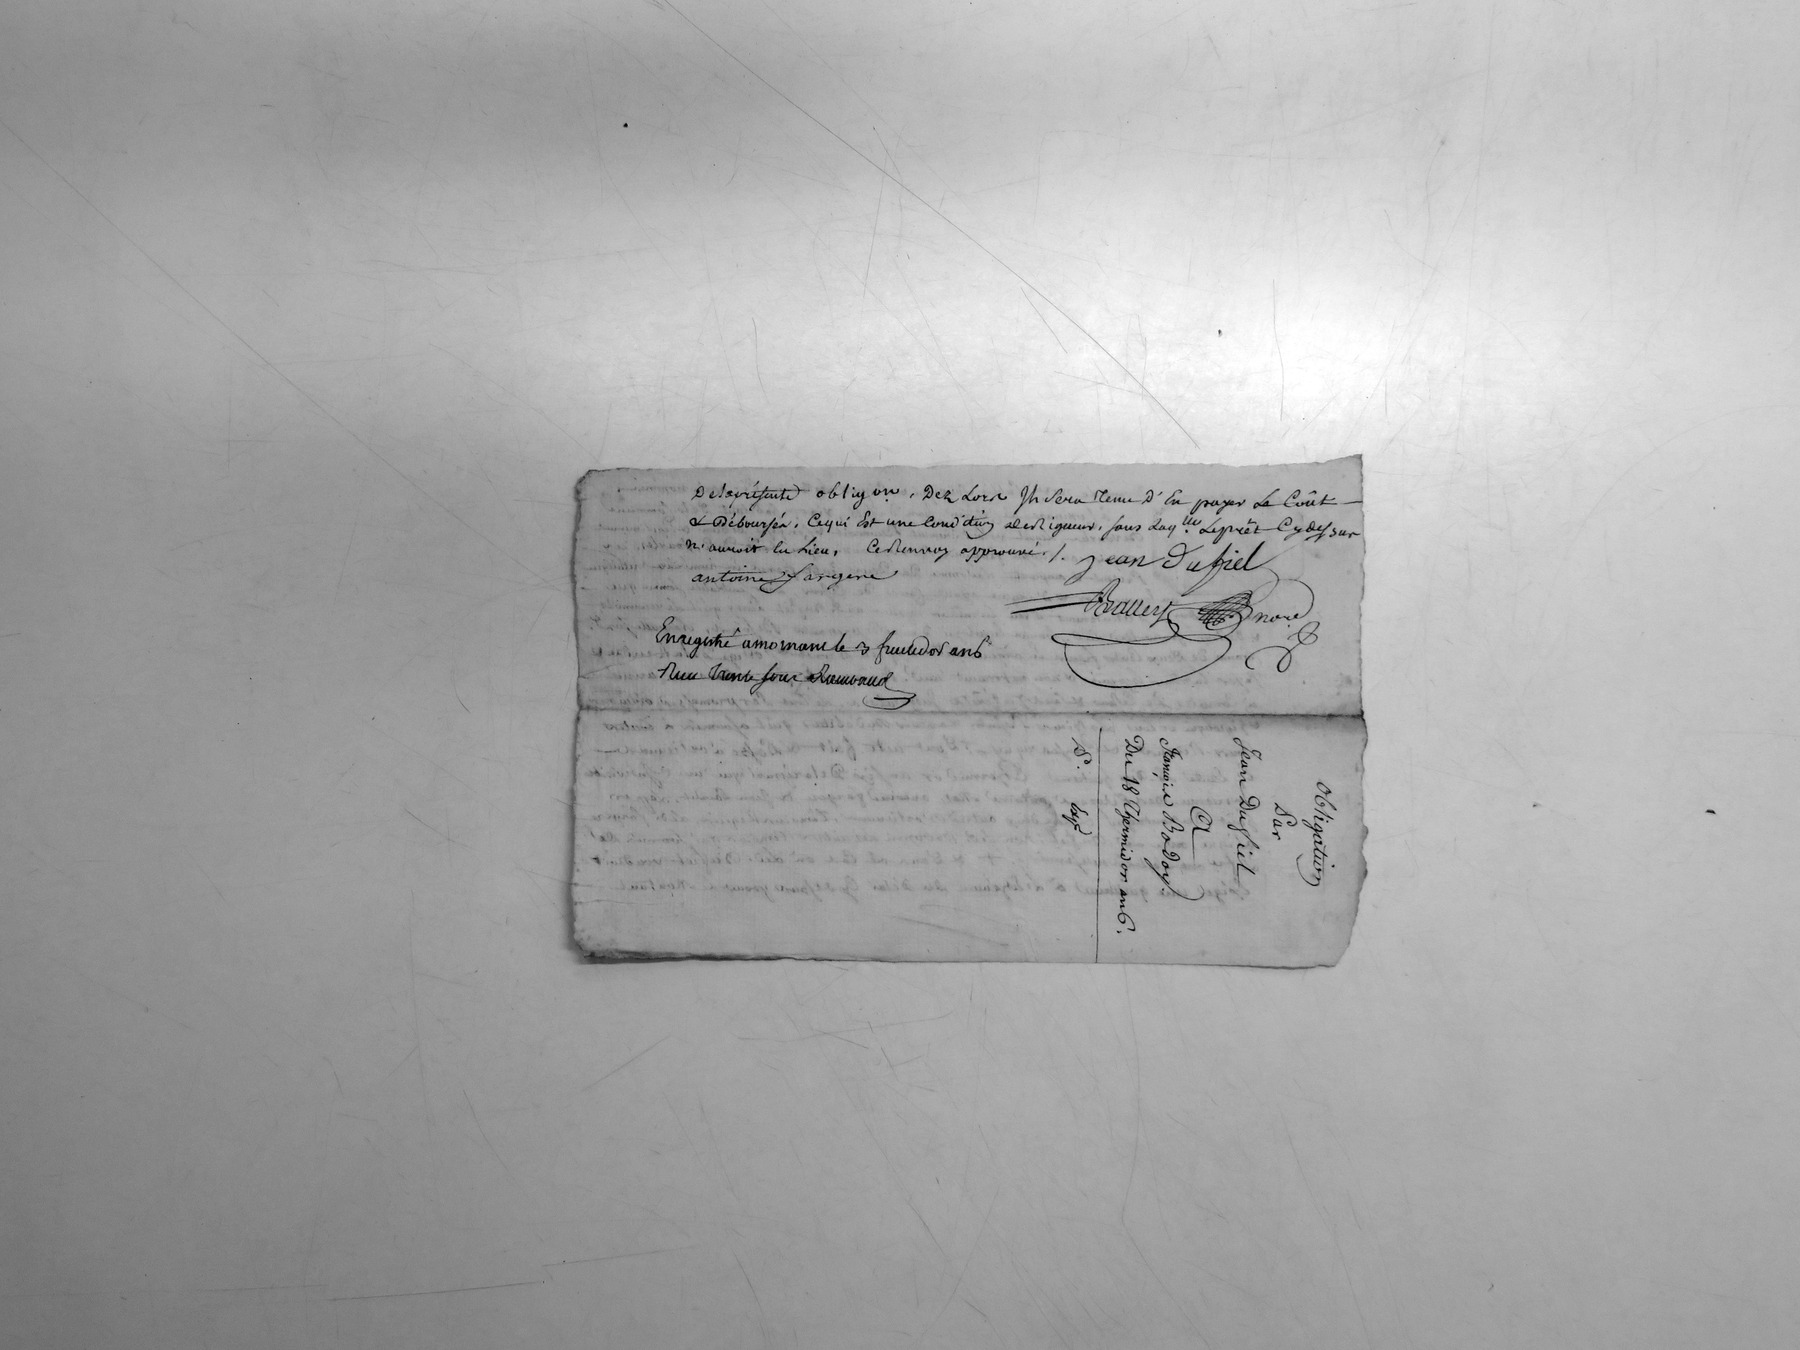 De la présente obligon. Dez Lors Jl sera Tenu D'En payer Le Coût
& Déboursés, Ce qui Est une Condition de Rigueur, sans Laqlle Le prêt Cy dessus
n'auroit Eu Lieu, Ce Renvoy approuvé ./. jean Dufiel
antoine fargere
Enregistré a mornant le 3 fructidor an 6
Reçu trente sous
Obligation
Par
Jean Dufiel
A
François Bodoy.
Du 18 Thermidor an 6.